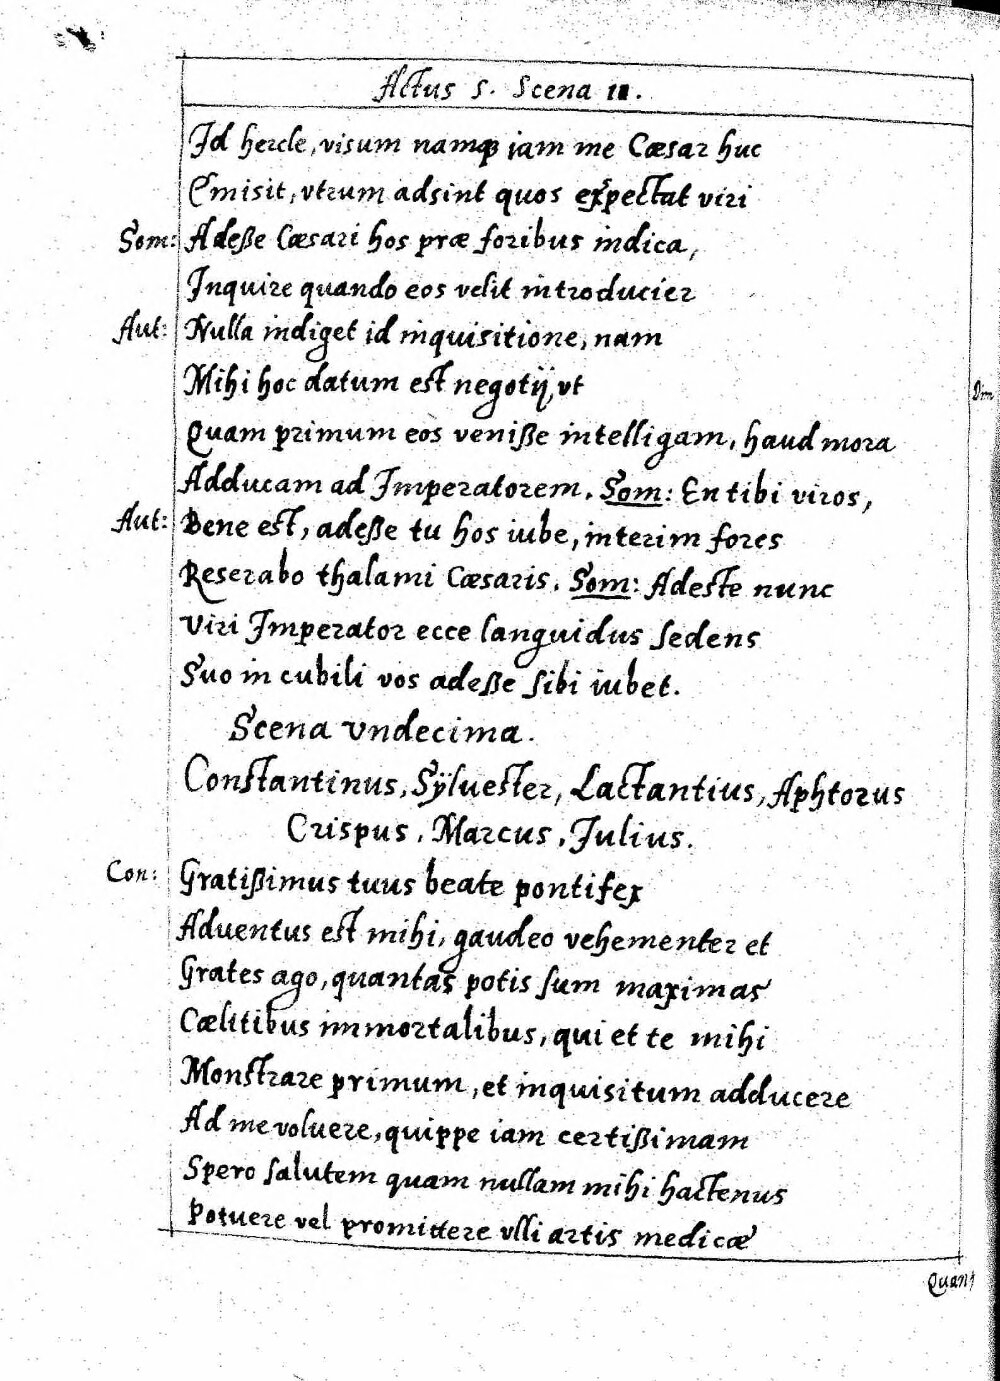 Actus 5. Scena 11.
Id hercle, visum namq₃ iam me Cæsar huc
Emisit, vtrum adsint quos expectat viri
Som: Adeße Cæsari hos præ foribus indica,
Inquire quando eos velit introducier
Aut: Nulla indiget id inquisitione, nam
Mihi hoc datum est negotij, vt
Quam primum eos veniße intelligam, haud mora
Adducam ad Imperatorem. Som: En tibi viros,
Aut: Bene est, adeße tu hos iube, interim fores
Reserabo thalami Cæsaris. Som: Adeste nunc
Viri Imperator ecce languidus sedens
Suo in cubili vos adeße sibi iubet.
Scena vndecima.
Constantinus, Sÿluester, Lactantius, Aphtorus
Crispus, Marcus, Julius.
Con: Gratißimus tuus beate pontifex
Aduentus est mihi, gaudeo vehementer et
Grates ago, quantas potis sum maximas
Cælitibus immortalibus, qui et te mihi
Monstrare primum, et inquisitum adducere
Ad me voluere, quippe iam certißimam
Spero salutem quam nullam mihi hactenus
Potuere vel promittere vlli artis medicæ
Dim